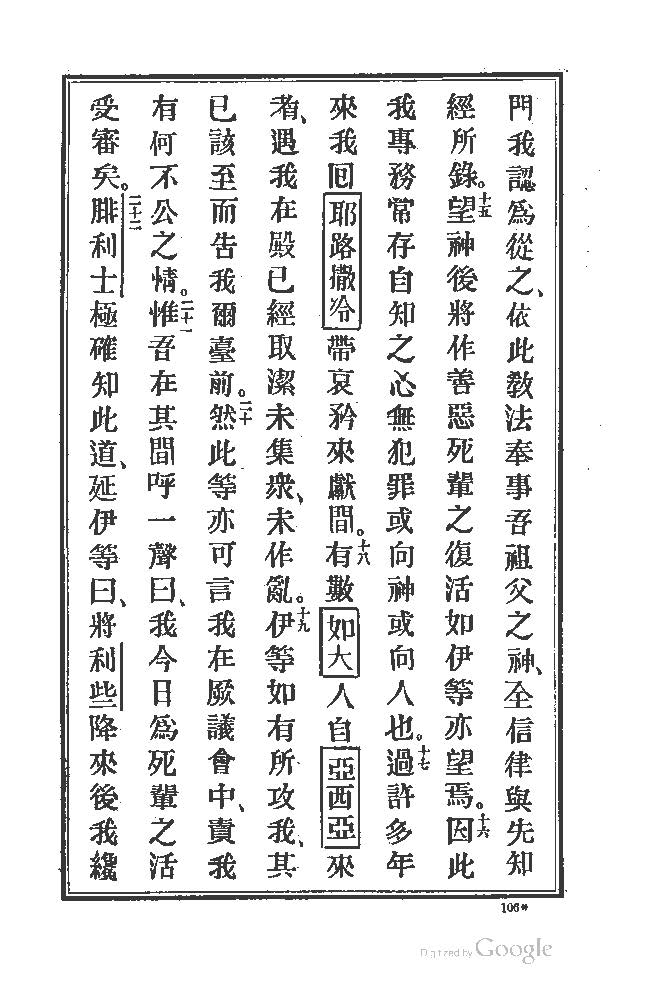 門我認爲從之、依此敎法奉事吾祖父之神、仝信律與先知
經所錄。十五望神後將作善惡死輩之復活如伊等亦望焉。十六因此
我專務常存自知之心無犯罪或向神或向人也。十七過許多年
來我囘耶路撒冷帶哀矜來獻間。十八有數如大人自亞西亞來
者、遇我在殿已經取潔未集衆、未作亂。十九伊等如有所攻我、其
已該至而告我爾臺前。二十然此等亦可言我在厥議會中、責我
有何不公之情。二十一惟吾在其間呼一聲曰、我今日爲死輩之活
受審矣。二十二腓利士極確知此道、延伊等曰、將利些降來後我纔
106*
Digitized by Google